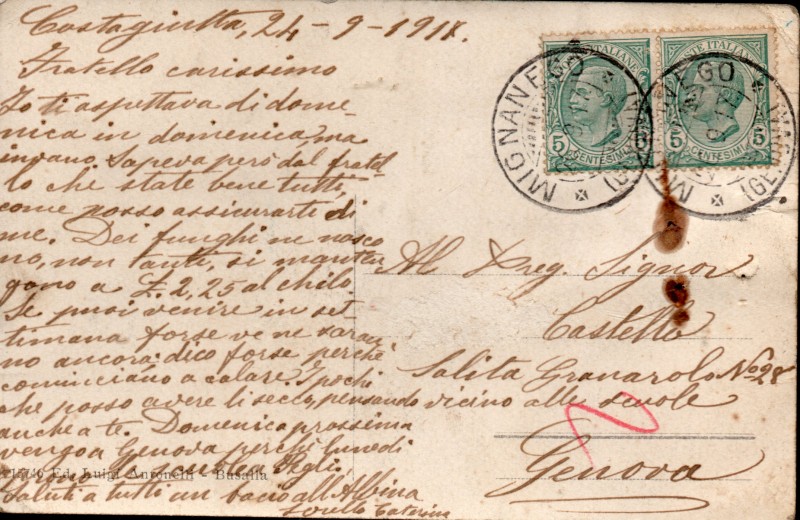 Costagiutta, 24-9-1918.
Fratello carissimo
Io ti aspettava di dome-
nica in domenica, ma
invano. Sapeva però dal fratel-
lo che state bene tutti,
come posso assicurarti di
me. Dei funghi ne nasco
no, non tanti, si manten
gono a £. 2,25 al chilo
Se puoi venire in set
timana forse ve ne saran
no ancora: dico forse perchè
cominciano a calare. I pochi
che posso avere li secco, pensando
anche a te. Domenica prossima
vengo a Genova perchè lunedì
Pegli
Saluti a tutti un bacio all'Albina
Sorella Caterina
15706 Ed. Luigi Antonelli - Busalla
POSTE ITALIANE
5 5
CENTESIMI
POSTE ITALIANE
5 5
CENTESIMI
MIGNANEGO
MIGNANEGO
(GE
Al Preg. Signor
Castello
Salita Granarolo No 28
vicino alle scuole
Genova